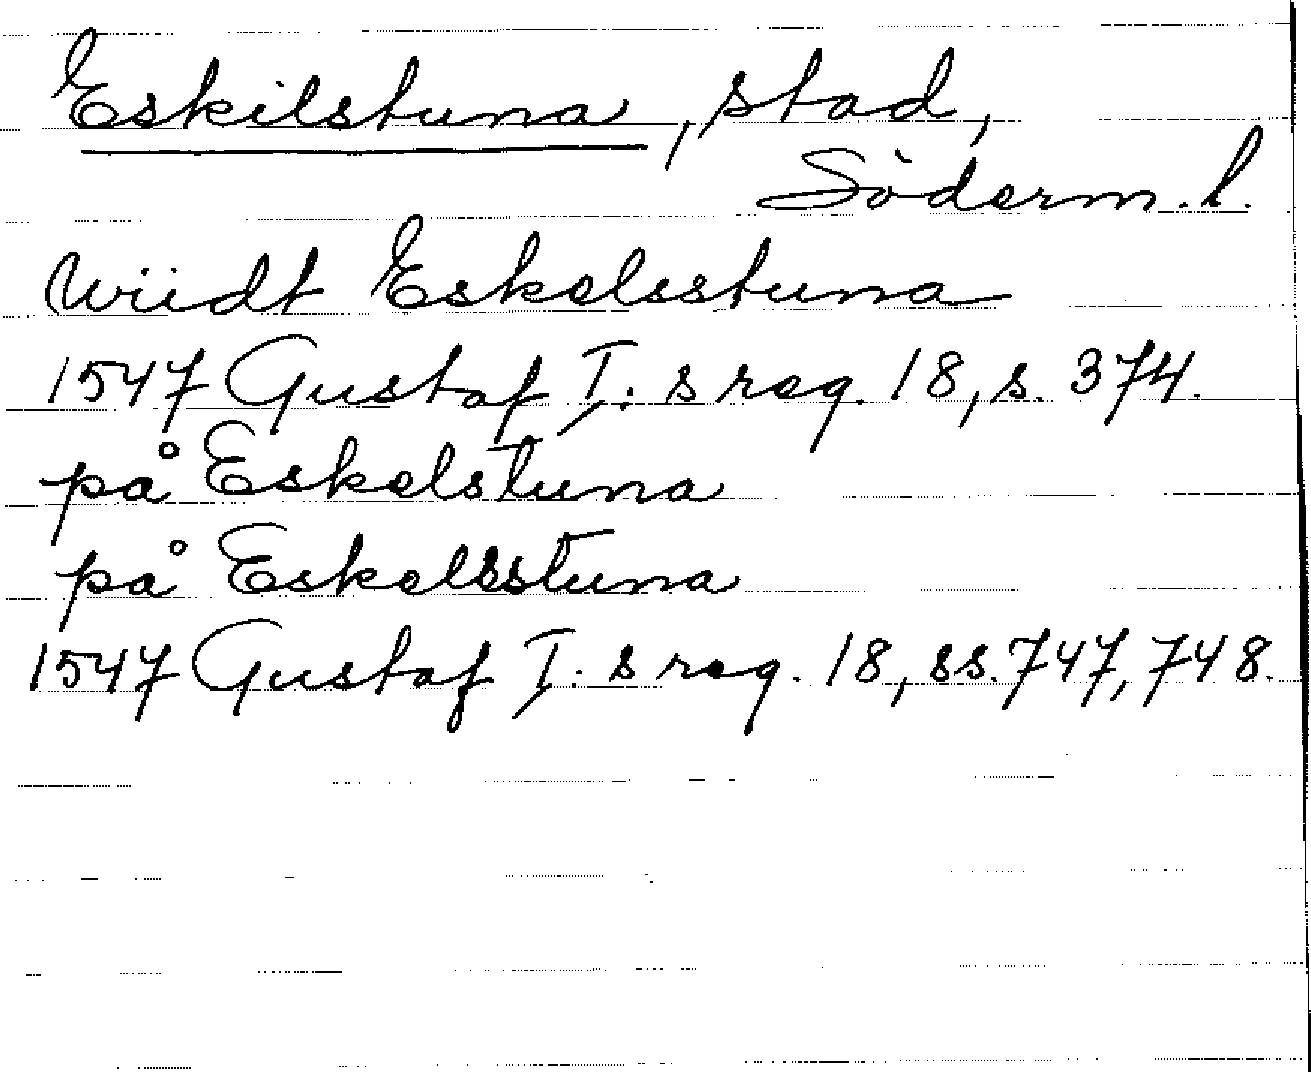 Eskilstuna, stad,
Söderm. l.
widt Eskelsstuna
1547 Gustaf I:s reg. 18, s. 374.
på Eskelstuna
på Eskelsstuna
1547 Gustaf I:s reg. 18, ss. 747, 748.